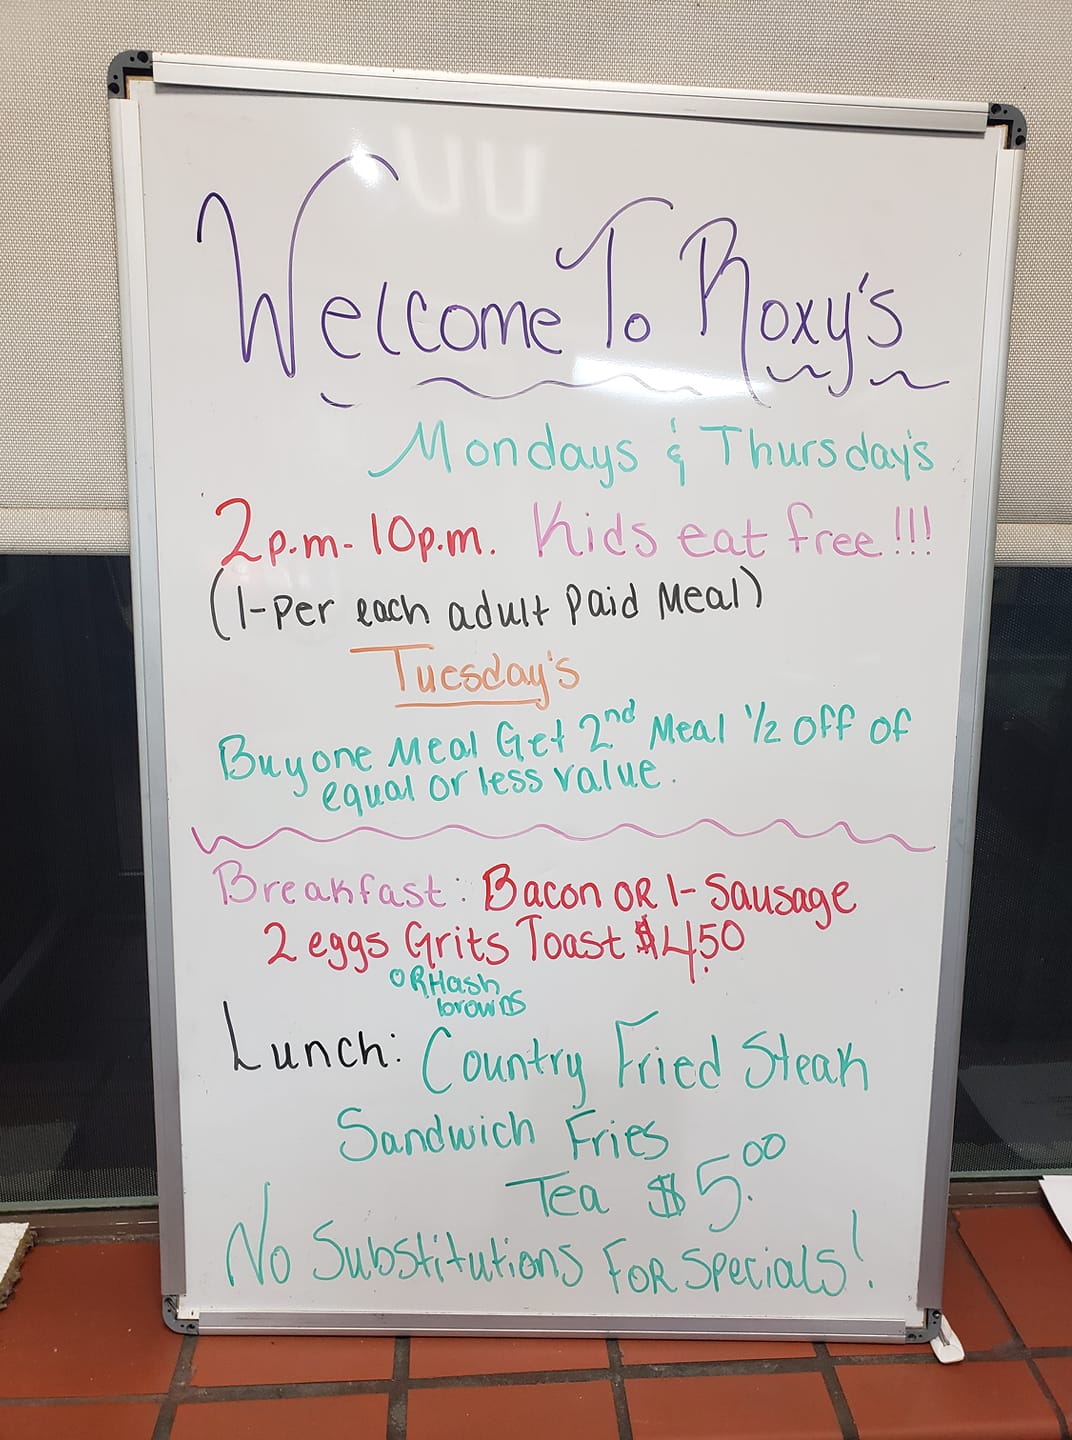 Welcome To Roxy's
Mondays & Thursday's
2p.m-10p.m. Kids eat free!!!
(1-Per each adult Paid Meal)
Tuesday's
Buy one Meal Get 2nd Meal 1/2 off of
equal or less value.
Breakfast: Bacon OR 1-Sausage
2 eggs Grits Toast $4.50
OR Hash
browns
Lunch: Country Fried Steak
Sandwich Fries
Tea $5.00
No Substitutions FOR Specials!